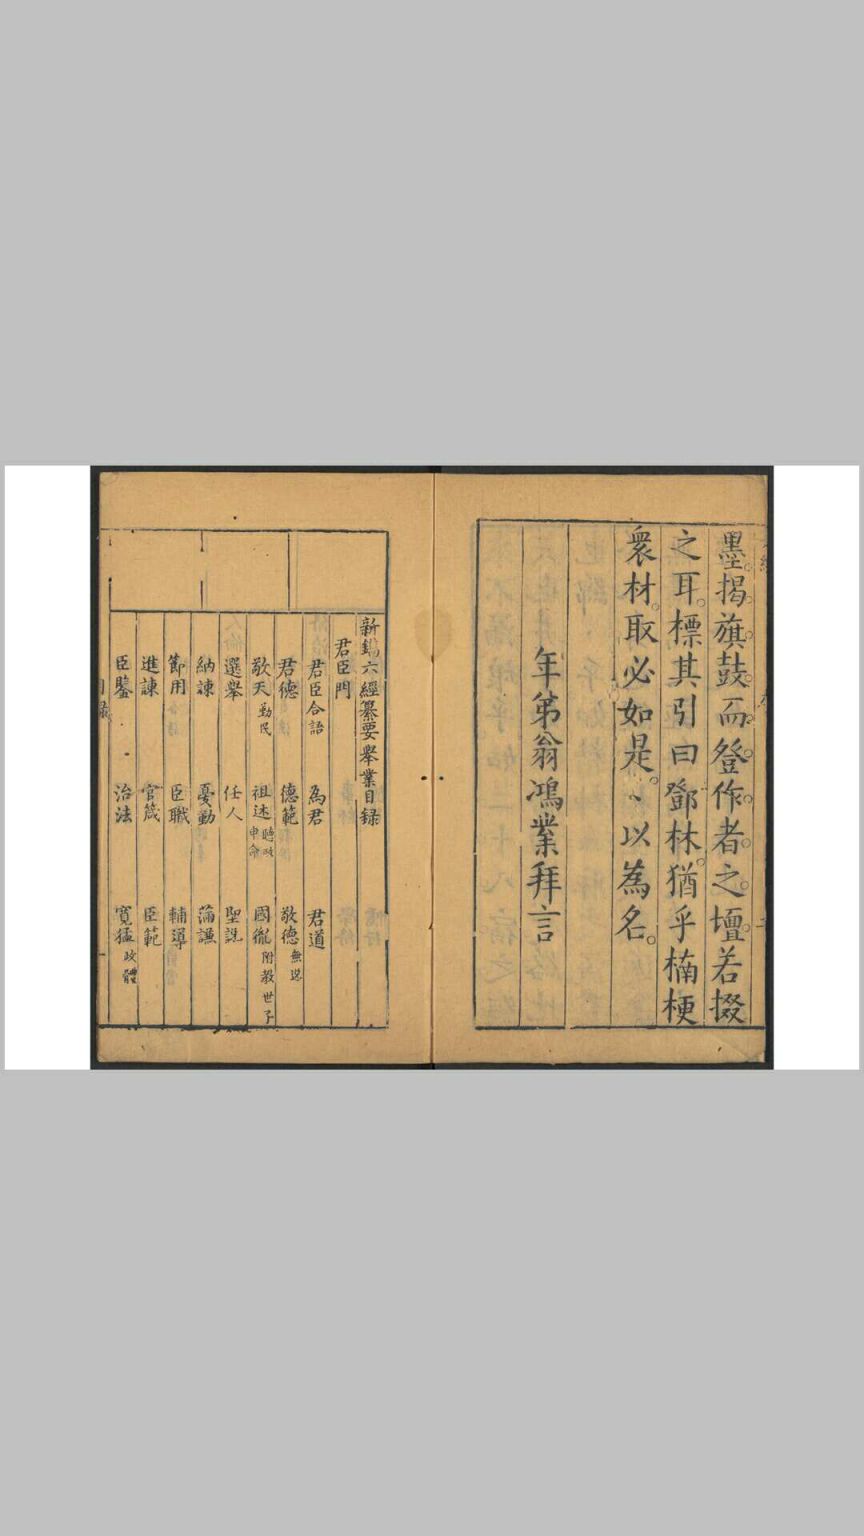 墨。揭。旗。鼓。而。登。作。者。之。壇。若掇
之耳。標其引曰鄧林。猶乎楠梗
衆材。取必如是。、以為名。
年弟翁鴻業拜言
新鐫六經纂要舉業目錄
君臣門
君臣合語 為君 君道
君德 德範 敬德 無逸
敬天 勤民 祖述 聽政 申命 國儲 附教世子
選舉 任人 聖訓
納諫 憂勤 滿謙
節用 臣職 輔導
進諫 官箴 臣範
臣鑒 治法 寬猛 政體
目錄